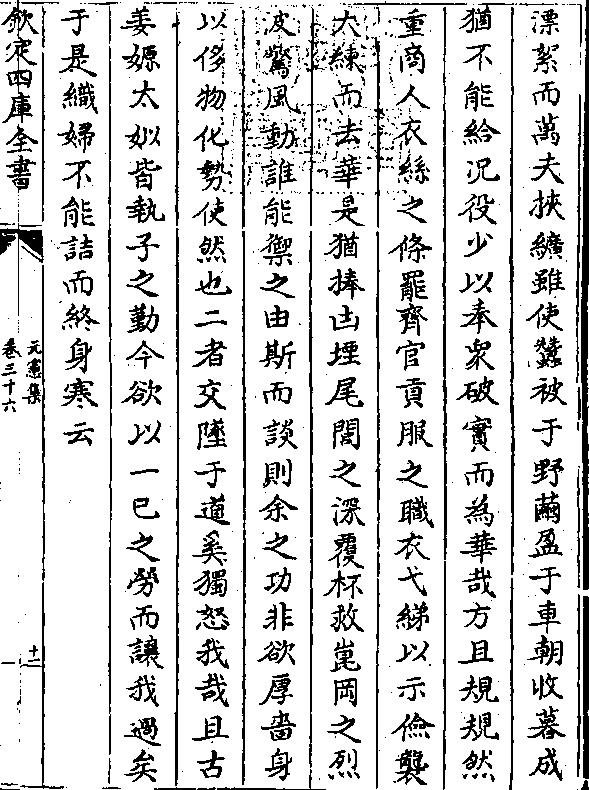 漂絮而萬夫挾纊雖使蠶被于野繭盈于車朝收暮成
猶不能給況役少以奉衆破實而為華哉方且規規然
重商人衣絲之條罷齊官貢服之職衣弋綈以示儉襲
大練而去華是猶捧凷堙尾閭之深覆杯救崑岡之烈
波驚風動誰能禦之由斯而談則余之功非欲厚嗇身
以侈物化勢使然也二者交墜于道奚獨怒我哉且古
姜嫄太姒皆執子之勤今欲以一已之勞而讓我過矣
于是織婦不能詰而終身寒云
欽定四庫全書
元憲集
卷三十六
十二